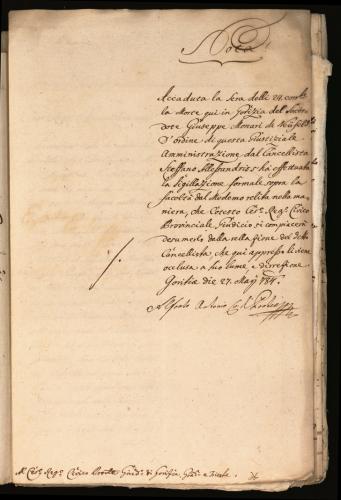 Nota
Accaduta la sera delli 24. corr.te
la Morte qui in Gorizia del Sacer-
dote Giuseppe Monari di
D'ordine di questa Giustiziale
Amministrazione dal Cancellista
Steffano s'ha effettuata
la Sigillazione formale sopra la
facoltà del Medemo relitta nella ma-
niera, che Cotesto Ces.o Reg.o Civico
Provinciale Giudicio si compiacerà
desumerlo dalla rellazione del
Cancellista, che qui appresso li viene
occlusa a suo lume, e direzione
Goritiæ die 27. Maÿ
Antonio
Al Ces.o Reg.o Civico Giud.o di Gorizia